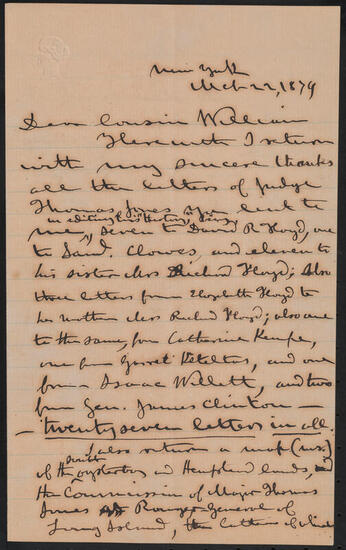 New York
Mch 22, 1879
Dear Cousin William
Herewith I return
with my sincere thanks
all the letters of Judge
Thomas Jones you lent to
in editing his "History", being
me, seven to David R Floyd, one
to Saml. Clowes, and eleven to
his sister Mrs Richard Floyd; Also
three letters from Elizabeth Floyd to
her mother Mrs Richard Floyd; also one
to the same, from Catharine Kempe,
one from Garret Keteltas, and one
from Isaac Willett, and two
from Gen. James Clinton —
— twenty seven letters in all.
I also return a map (ms.)
south
of the oysterbay and Hempstead lands, and
the Commission of Major Thomas
Jones as Ranger-General of
Long Island, the